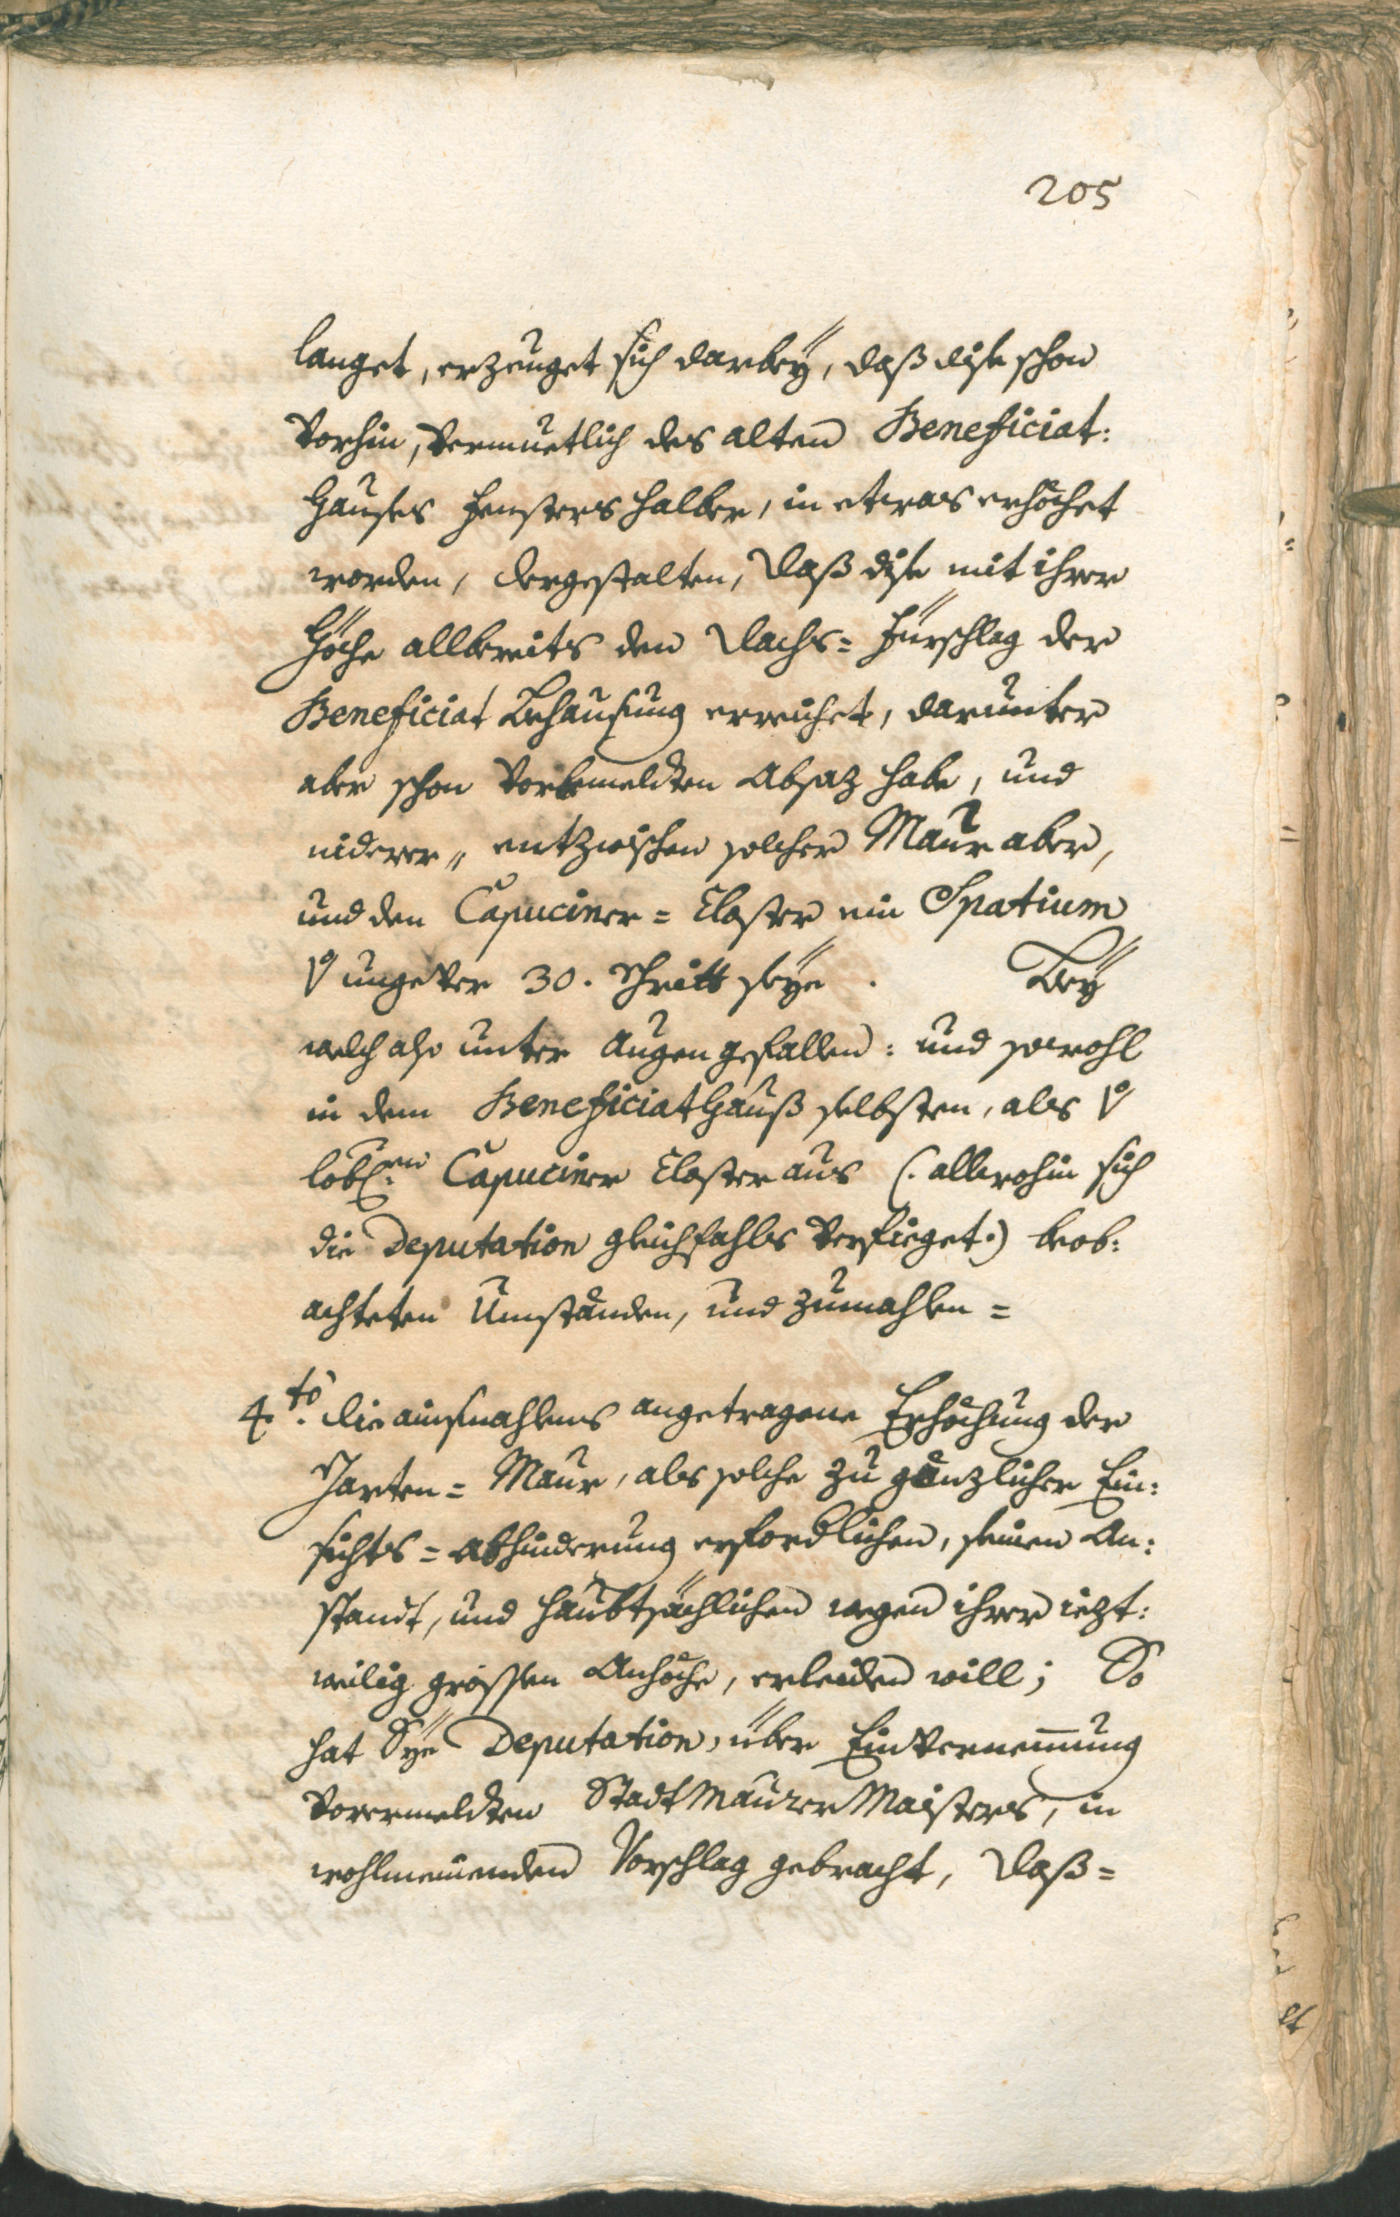 205
langet, erzeuget sich darbeÿ, daß dise schon
Vorhin, Vermuetlich des alten Beneficiat:
Hauses Fensters halber, in etwas erhöchet
worden, dergestalten, daß dise mit ihrer
Höche allbereits den Dachs= Fürschlag der
Beneficiat Behausung erreichet, darunter
aber schon Vorbemeldten Absaz habe, und
niderer„ entzwischen solcher Maur aber,
und den Capuciner= Closter ein Spatium
Vo ungeVer 30. Schritt seÿe. Beÿ
welch also unter Augen gefallen: und sowohl
in dem Beneficiat Hauß selbsten, als Vo
löbl:en Capuciner Closter aus (: allwohin sich
die Deputation gleichfahls Verfieget:) beob:
achteten Umständen, und zumahlen=
4.to die ainsmahlens angetragene Erhöchung der
Garten= Maur, als solche zu gänzlicher Ein:
sichts= Abhinderung erfordlichen, seinen An:
standt, und haubtsächlichen wegen ihrer iezt:
weilig grossen Anhöche, erleiden will; So
hat Sÿe Deputation, über EinVernemmung
Vorermeldten Stadt Maurer Maisters, in
wohlmeinenden Vorschlag gebracht, daß=